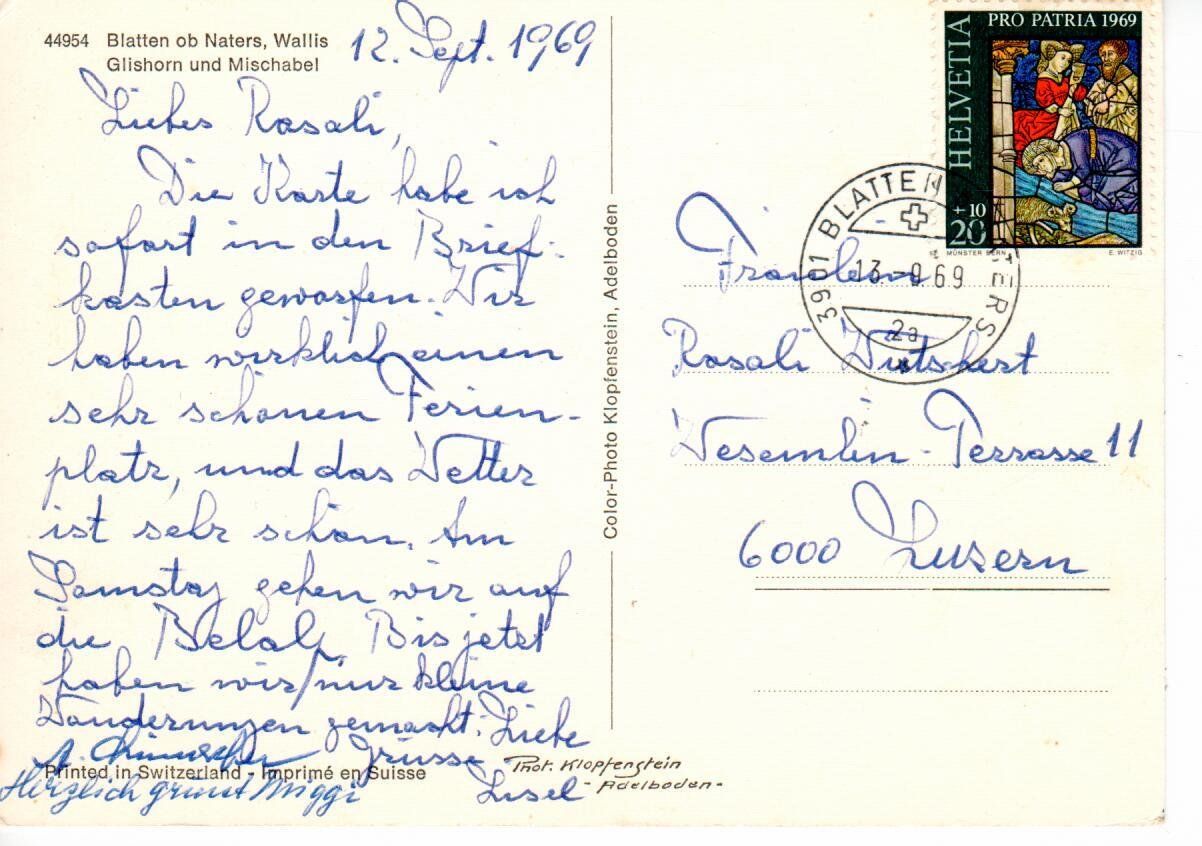 44954 Blatten ob Naters, Wallis
Glishorn und Mischabel
12. Sept. 1969
Liebes Rosali,
Die Karte habe ich
sofort in den Brief-
kasten geworfen. Wir
haben wirklich einen
sehr schönen Ferien-
platz, und das Wetter
ist sehr schön. Am
Samstag gehen wir auf
die Belalp. Bis jetzt
haben wir nur kleine
Wanderungen gemacht. Liebe
Grüsse
Lisel
Herzlich grüsst Miggi
Printed in Switzerland - Imprimé en Suisse
Phot. Klopfenstein
- Adelboden -
Color-Photo Klopfenstein, Adelboden
HELVETIA
PRO PATRIA 1969
+10
20
MÜNSTER BERN
E. WITZIG
3901 BLATTEN TERS
13.-9 69
2a
Fräulein
Rosali Wutschert
Wesemlin-Terrasse 11
6000 Luzern